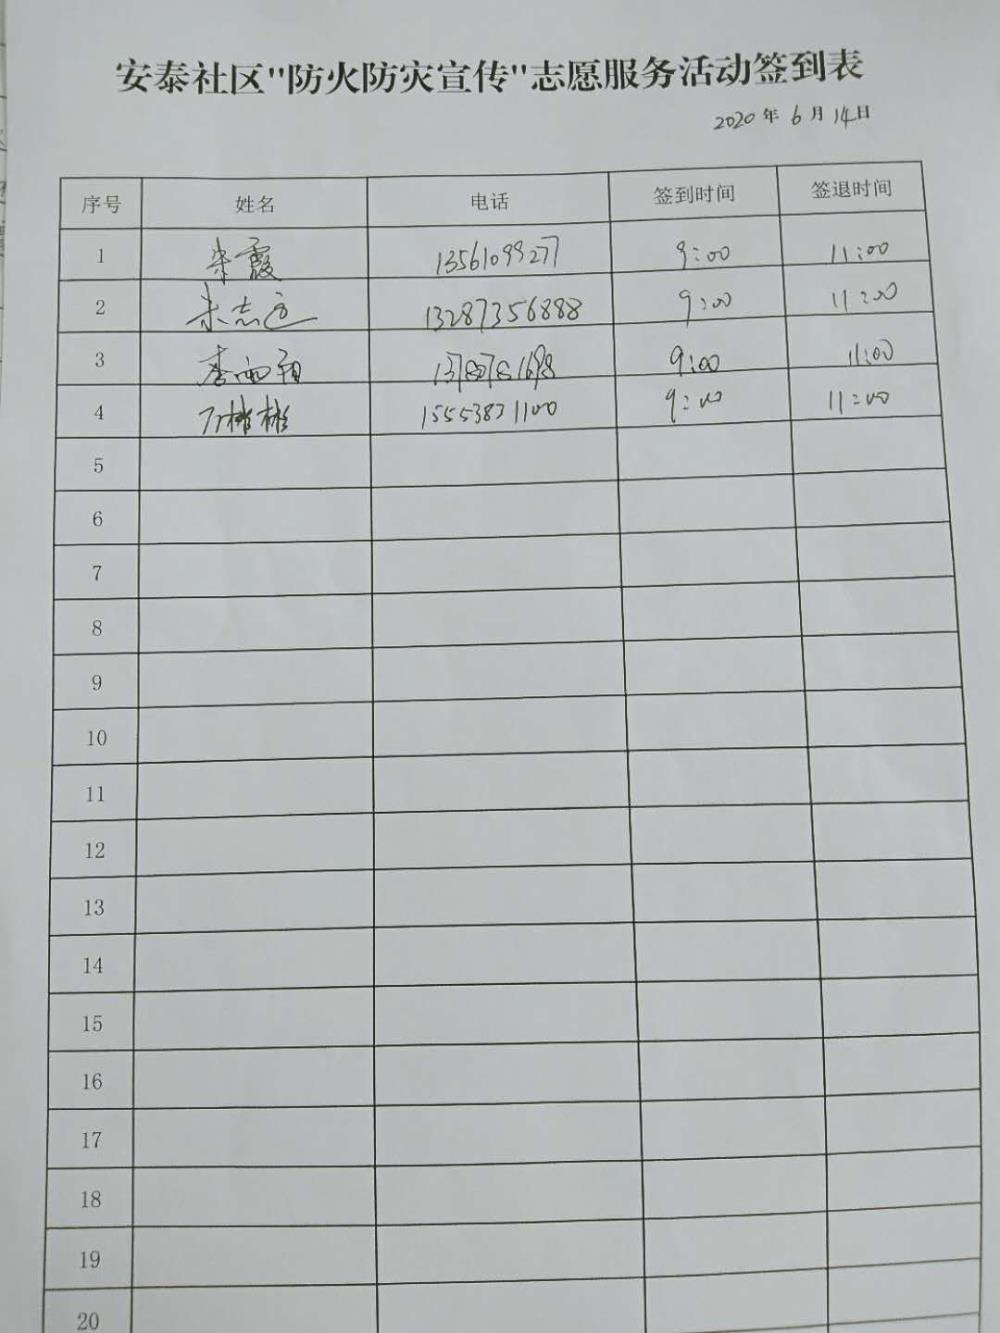 安泰社区"防火防灾宣传"志愿服务活动签到表
2020年6月14日
序号 姓名 电话 签到时间 签退时间
1 朱霞 13561099277 9:00 11:00
2 朱志远 13287356888 9:00 11:00
3 李雨 9:00 11:00
4 彬彬 15553871100 9:00 11:00
5
6
7
8
9
10
11
12
13
14
15
16
17
18
19
20